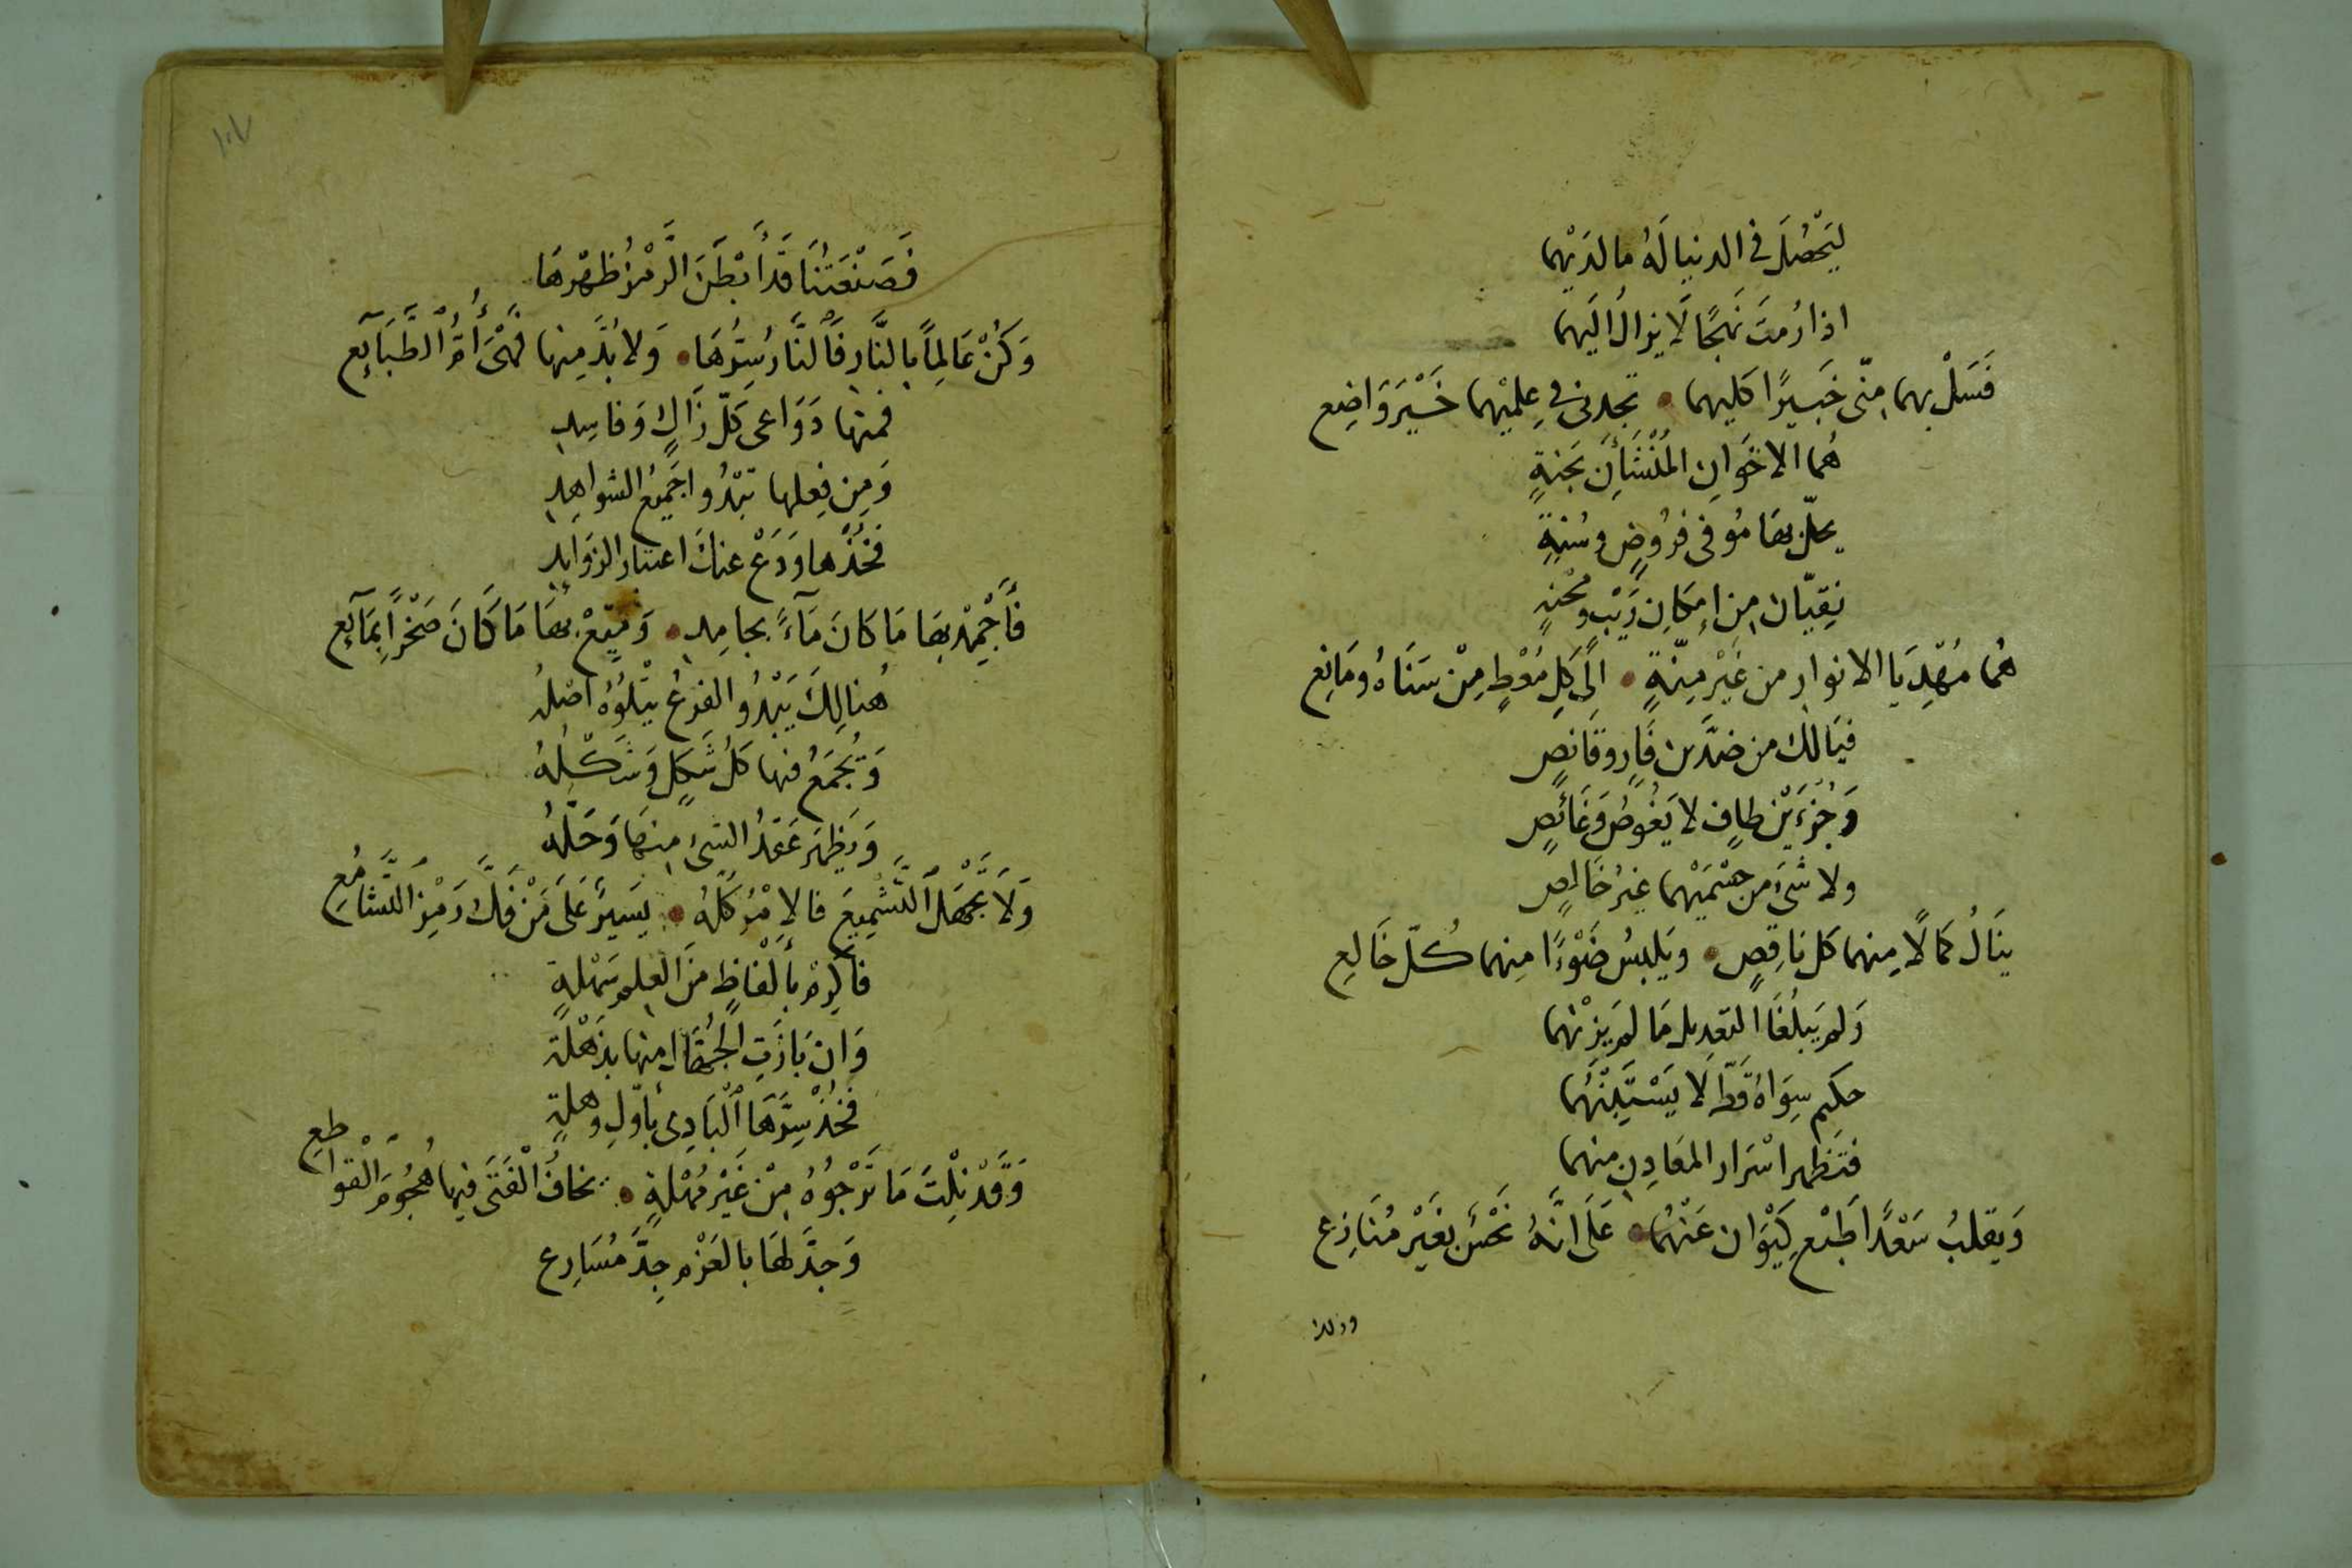 لِيَحْصُلَ في الدنيا لَهُ ما لديهما
اذا رُمتَ نَهجًا لَا يزالُ اليَهما
فَسَلْ بهما مِنّى خَبيرًا كليهما • تجدنى في عِلميْهما خَيْرَ وَاضِع
هُما الاخوانِ المُنْشَآنِ بَجنةٍ
يحلّ بها مُوفى فرُوضٍ وسُنةٍ
نِقيّان مِن إمكانِ رَيْبٍ ومحْنةٍ
هُما مُهْدِيَا الانوارِ من غَيْرِ مِنّةٍ • الى كلِ مُعْطٍ مِنْ سَنَاهُ ومَانِع
فيَالك من ضدَّين فَارٍ وقَانصٍ
وَجُزءَيْن طافٍ لا يَغُوصُ وَغَائصٍ
ولا شىَ من جسْمَيْهما غيرُ خَالصٍ
ينَالُ كمالًا مِنهما كل نَاقِصٍ • ويَلبسُ ضَوْءًا مِنهما كُلّ خَالعِ
وَلم يَبلُغَا التعدِيل مَا لم يَزِنْهما
حكيم سِوَاهُ قَطّ لَا يَسْتَبِنْهُما
فتَظهر اسْرَار المَعَادِنِ منهما
وَيقلبُ سَعْدًا طَبْعِ كَيْوَان عَنْهُما • عَلَى انَّهُ نَحْسٌ بغَيْرِ مُنَازِع
فَصَنْعَتُنَا قَدْ أَبْطَنَ الرَّمْزُ ظهْرهَا
وَكُنْ عَالِمًا بالنَّارِ فَالنَّارُ سِرُّهَا • وَلا بُدَّ مِنها فَهْىَ أُمُّ الطَّبَآيِع
فمنها دَوَاعى كلّ زَاكٍ وَفاسِدِ
وَمِن فِعلها تبْدُوا جَميعُ الشواهِدِ
فخُذْها وَدَعْ عنكَ اعتبار الزوَايدِ
فَأَجْمِدْ بهَا مَا كانَ مَآءً بجامِدِ • وَمَيّعْ بهَا مَا كَانَ صَخرًا بِمَآيِع
هُنالِكَ يَبْدُو الفرعُ يتْلُوُهُ اصْلهُ
وَتُجمَعُ فيها كلُ شَكلٍ وَشَكلهُ
وَيَظهَر عَقدُ الشىءِ مِنهَا وَحَلّهُ
وَلَا تَجْهَلِ التَّشْمِيعَ فالامْرُ كلّهُ • يَسيرٌ عَلَى مَنْ فَكَّ رَمْزَ التَّشَامُعِ
فأكرِمْ بأَلْفاظٍ مِنَ العِلمِ سَهْلةٍ
وَان بَاذَتِ الجُهَّالُ منها بذَهْلة
فخُذْ سِرَّهَا الْبَادِى بأوّلِ وهلةٍ
وَقَدْ نِلْتَ مَا تَرْجُوُهُ مِنْ غَيْرِ مُهْلةٍ • يخافُ الْفَتَى فيها هُجُومَ الْقَوَاطعِ
وَجدَّ لهَا بالعَزْمِ جِدَّ مُسَارِع